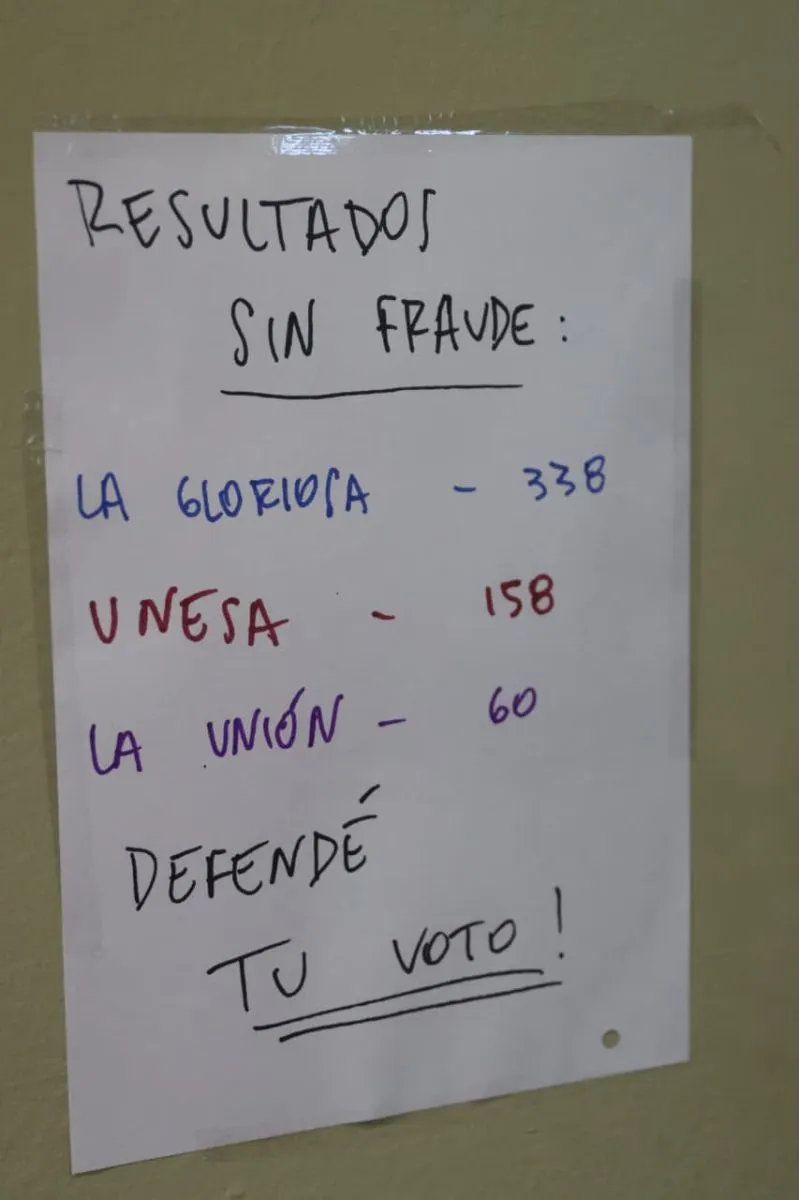 RESULTADOS
SIN FRAUDE:
LA GLORIOSA - 338
UNESA - 158
LA UNIÓN - 60
DEFENDÉ
TU VOTO!